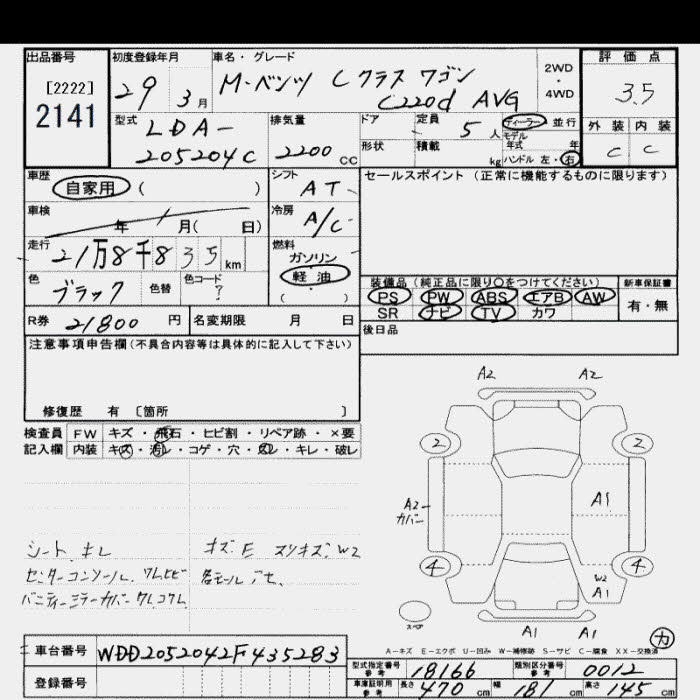 出品番号 初度登録年月 車名・グレード 評価点
[2222] 29 3月 M・ベンツ Cクラス ワゴン 2WD・4WD 3.5
2141 C220d AVG
型式 LDA- 排気量 ドア 定員 5人 ディーラー 並行 外装 内装
205204C 2200cc 形状 積載 kg モデル年式 年 C C
ハンドル 左・右
車歴 自家用 ( ) シフト AT セールスポイント(正常に機能するものに限ります)
車検 年 月( 日) 冷房 A/C
走行 21万8千835km 燃料 ガソリン
軽油
( )
色 ブラック 色替 色コード ? 装備品(純正品に限り〇をつけてください) 新車保証書
PS PW ABS エアB AW 有・無
R券 21800円 名変期限 月 日 SR ナビ TV カワ
注意事項申告欄(不具合内容等は具体的に記入して下さい) 後日品
修復歴 有 〔箇所 〕
検査員 FW キズ・飛石・ヒビ割・リペア跡・×要
記入欄 内装 キズ・汚レ・コゲ・穴・・キレ・破レ
A2 A2
2 2
A2 A1
カバー
シート キレ キズ E スリキズ W2
センターコンソール ワレヒビ 各モール
バニティーミラーカバー ワレ
4 4
W2
A1
スペア A1 A1 カ
A-キズ E-エクボ U-凹み W-補修跡 S-サビ C-腐食 XX-交換済
車台番号 WDD2052042F435283
登録番号
型式指定番号 参考 18166 類別区分番号 参考 0012
車庫証明用 参考 長さ 470cm 幅 181cm 高さ 145cm